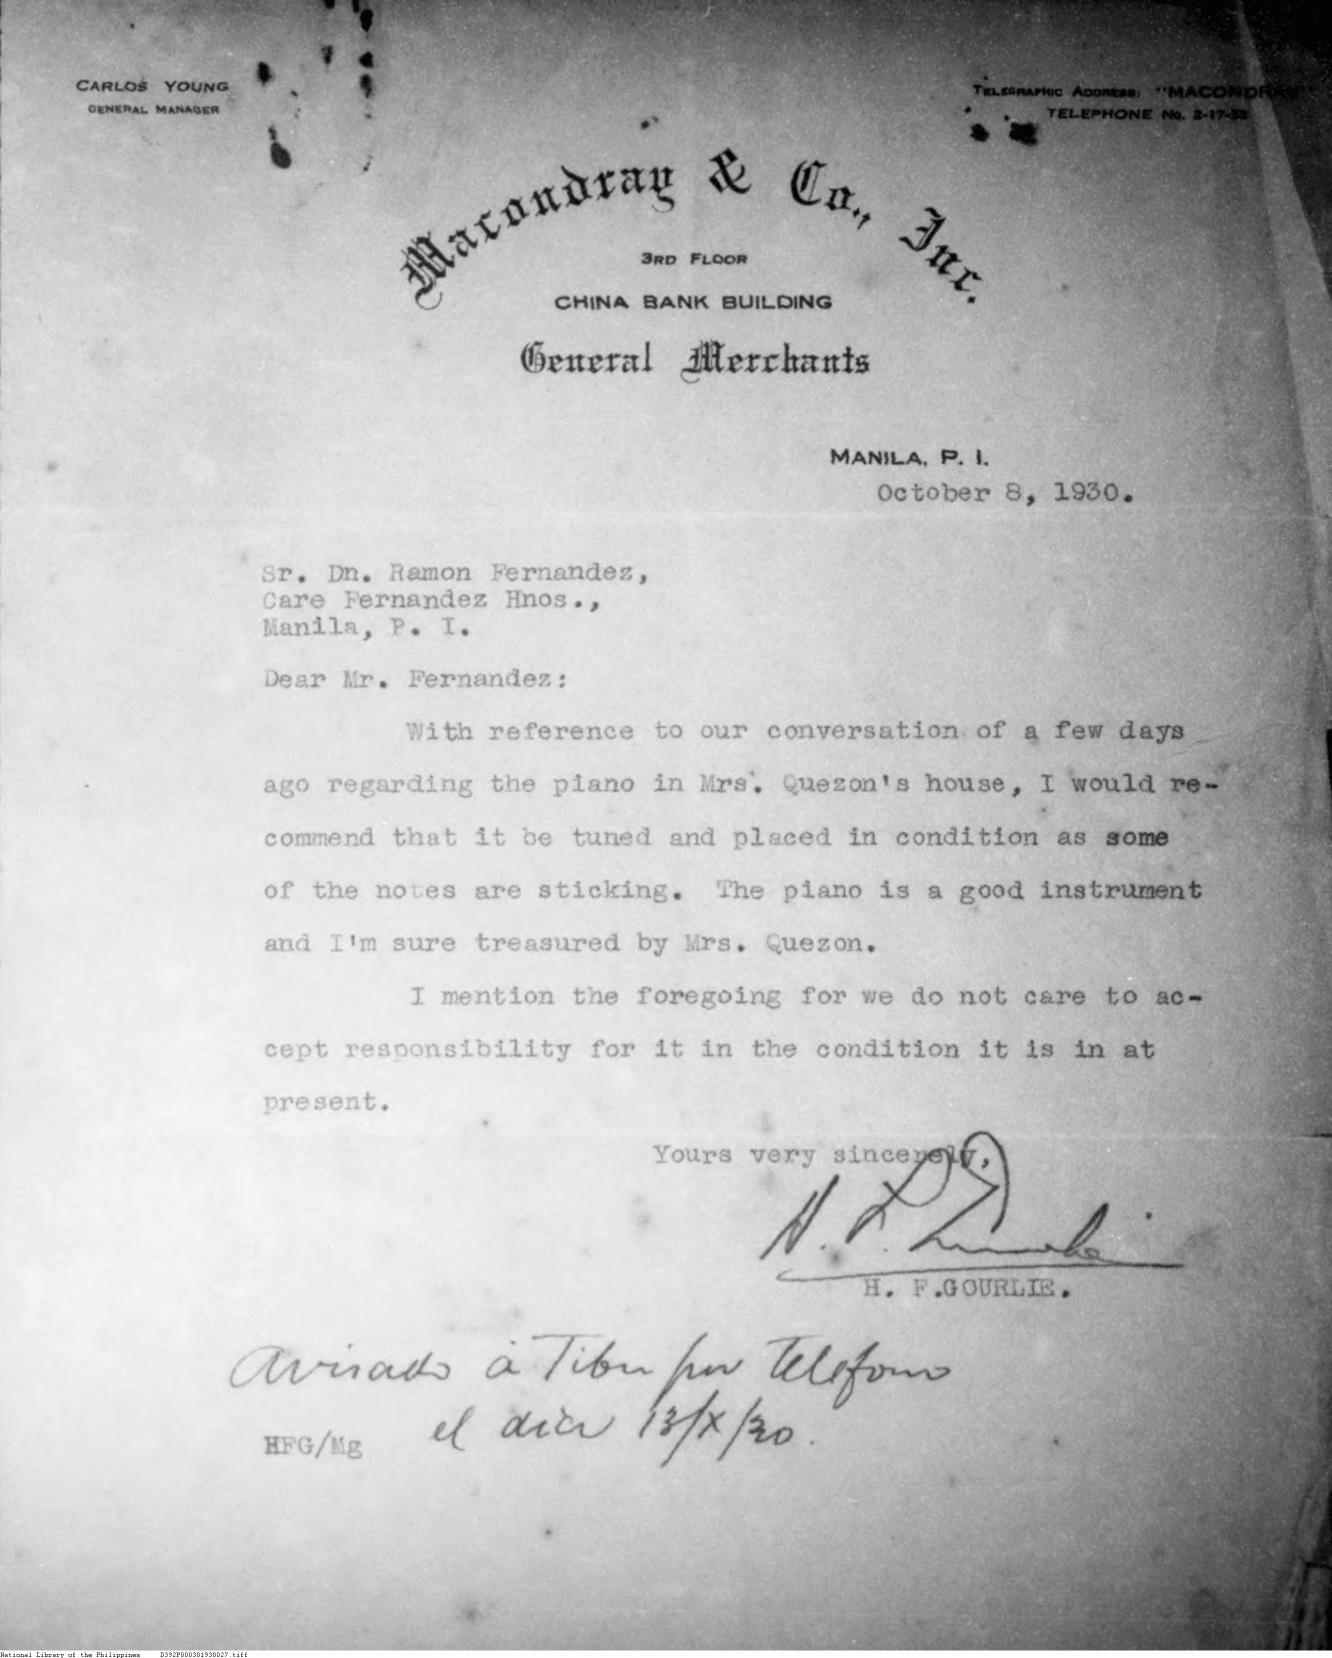 CARLOS YOUNG
GENERAL MANAGER
TELEGRAPHIC ADDRESS: "MACONDRAY"
TELEPHONE No. 2-17-
Macondray & Co., Inc.
3RD FLOOR
CHINA BANK BUILDING
General Merchants
MANILA, P. I.
October 8, 1930.
Sr. Dn. Ramon Fernandez,
Care Fernandez Hnos.,
Manila, P. I.
Dear Mr. Fernandez:
With reference to our conversation of a few days
ago regarding the piano in Mrs. Quezon's house, I would re-
commend that it be tuned and placed in condition as some
of the notes are sticking. The piano is a good instrument
and I'm sure treasured by Mrs. Quezon.
I mention the foregoing for we do not care to ac-
cept responsibility for it in the condition it is in at
present.
Yours very sincerely,
H. F. Gourlie
H. F.GOURLIE.
Avisado á Tibu por telefono
el dia 13/X/30.
HFG/Mg
National Library of the Philippines D392P000301930027.tiff